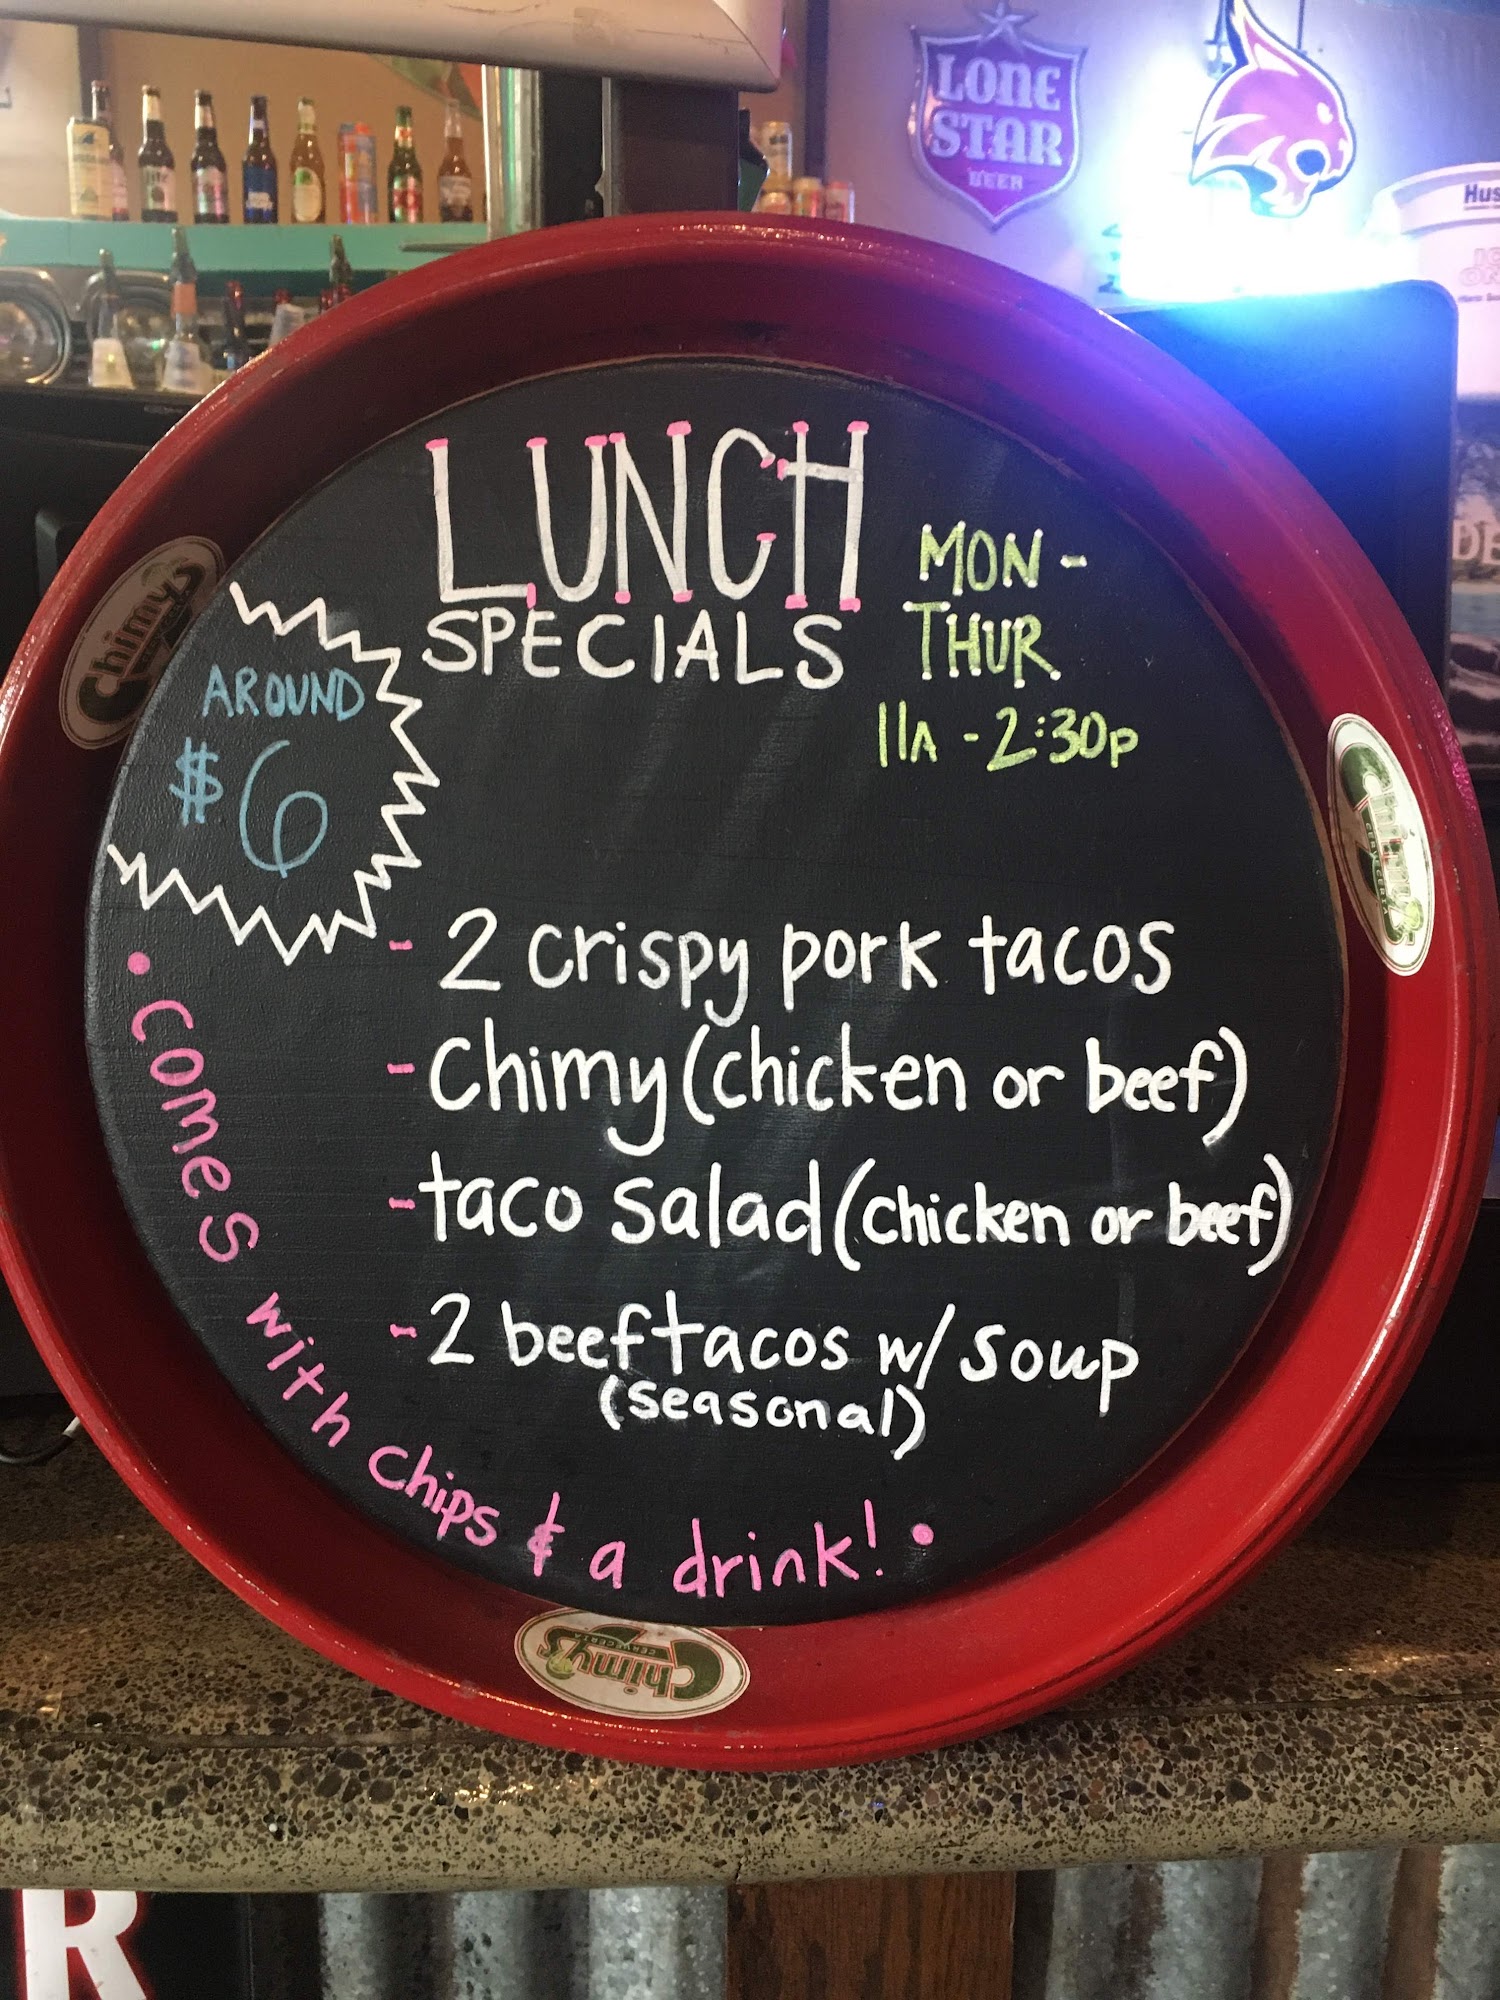 LONE
STAR
BEER
Hus
LUNCH
SPECIALS
MON -
THUR
11A - 2:30P
AROUND
$6
- 2 crispy pork tacos
- Chimy (chicken or beef)
- taco salad (chicken or beef)
- 2 beef tacos w/ soup
(seasonal)
• comes with chips & a drink! •
Chimy's
Chimy's
CERVECERIA
Chimy's
CERVECERIA
R